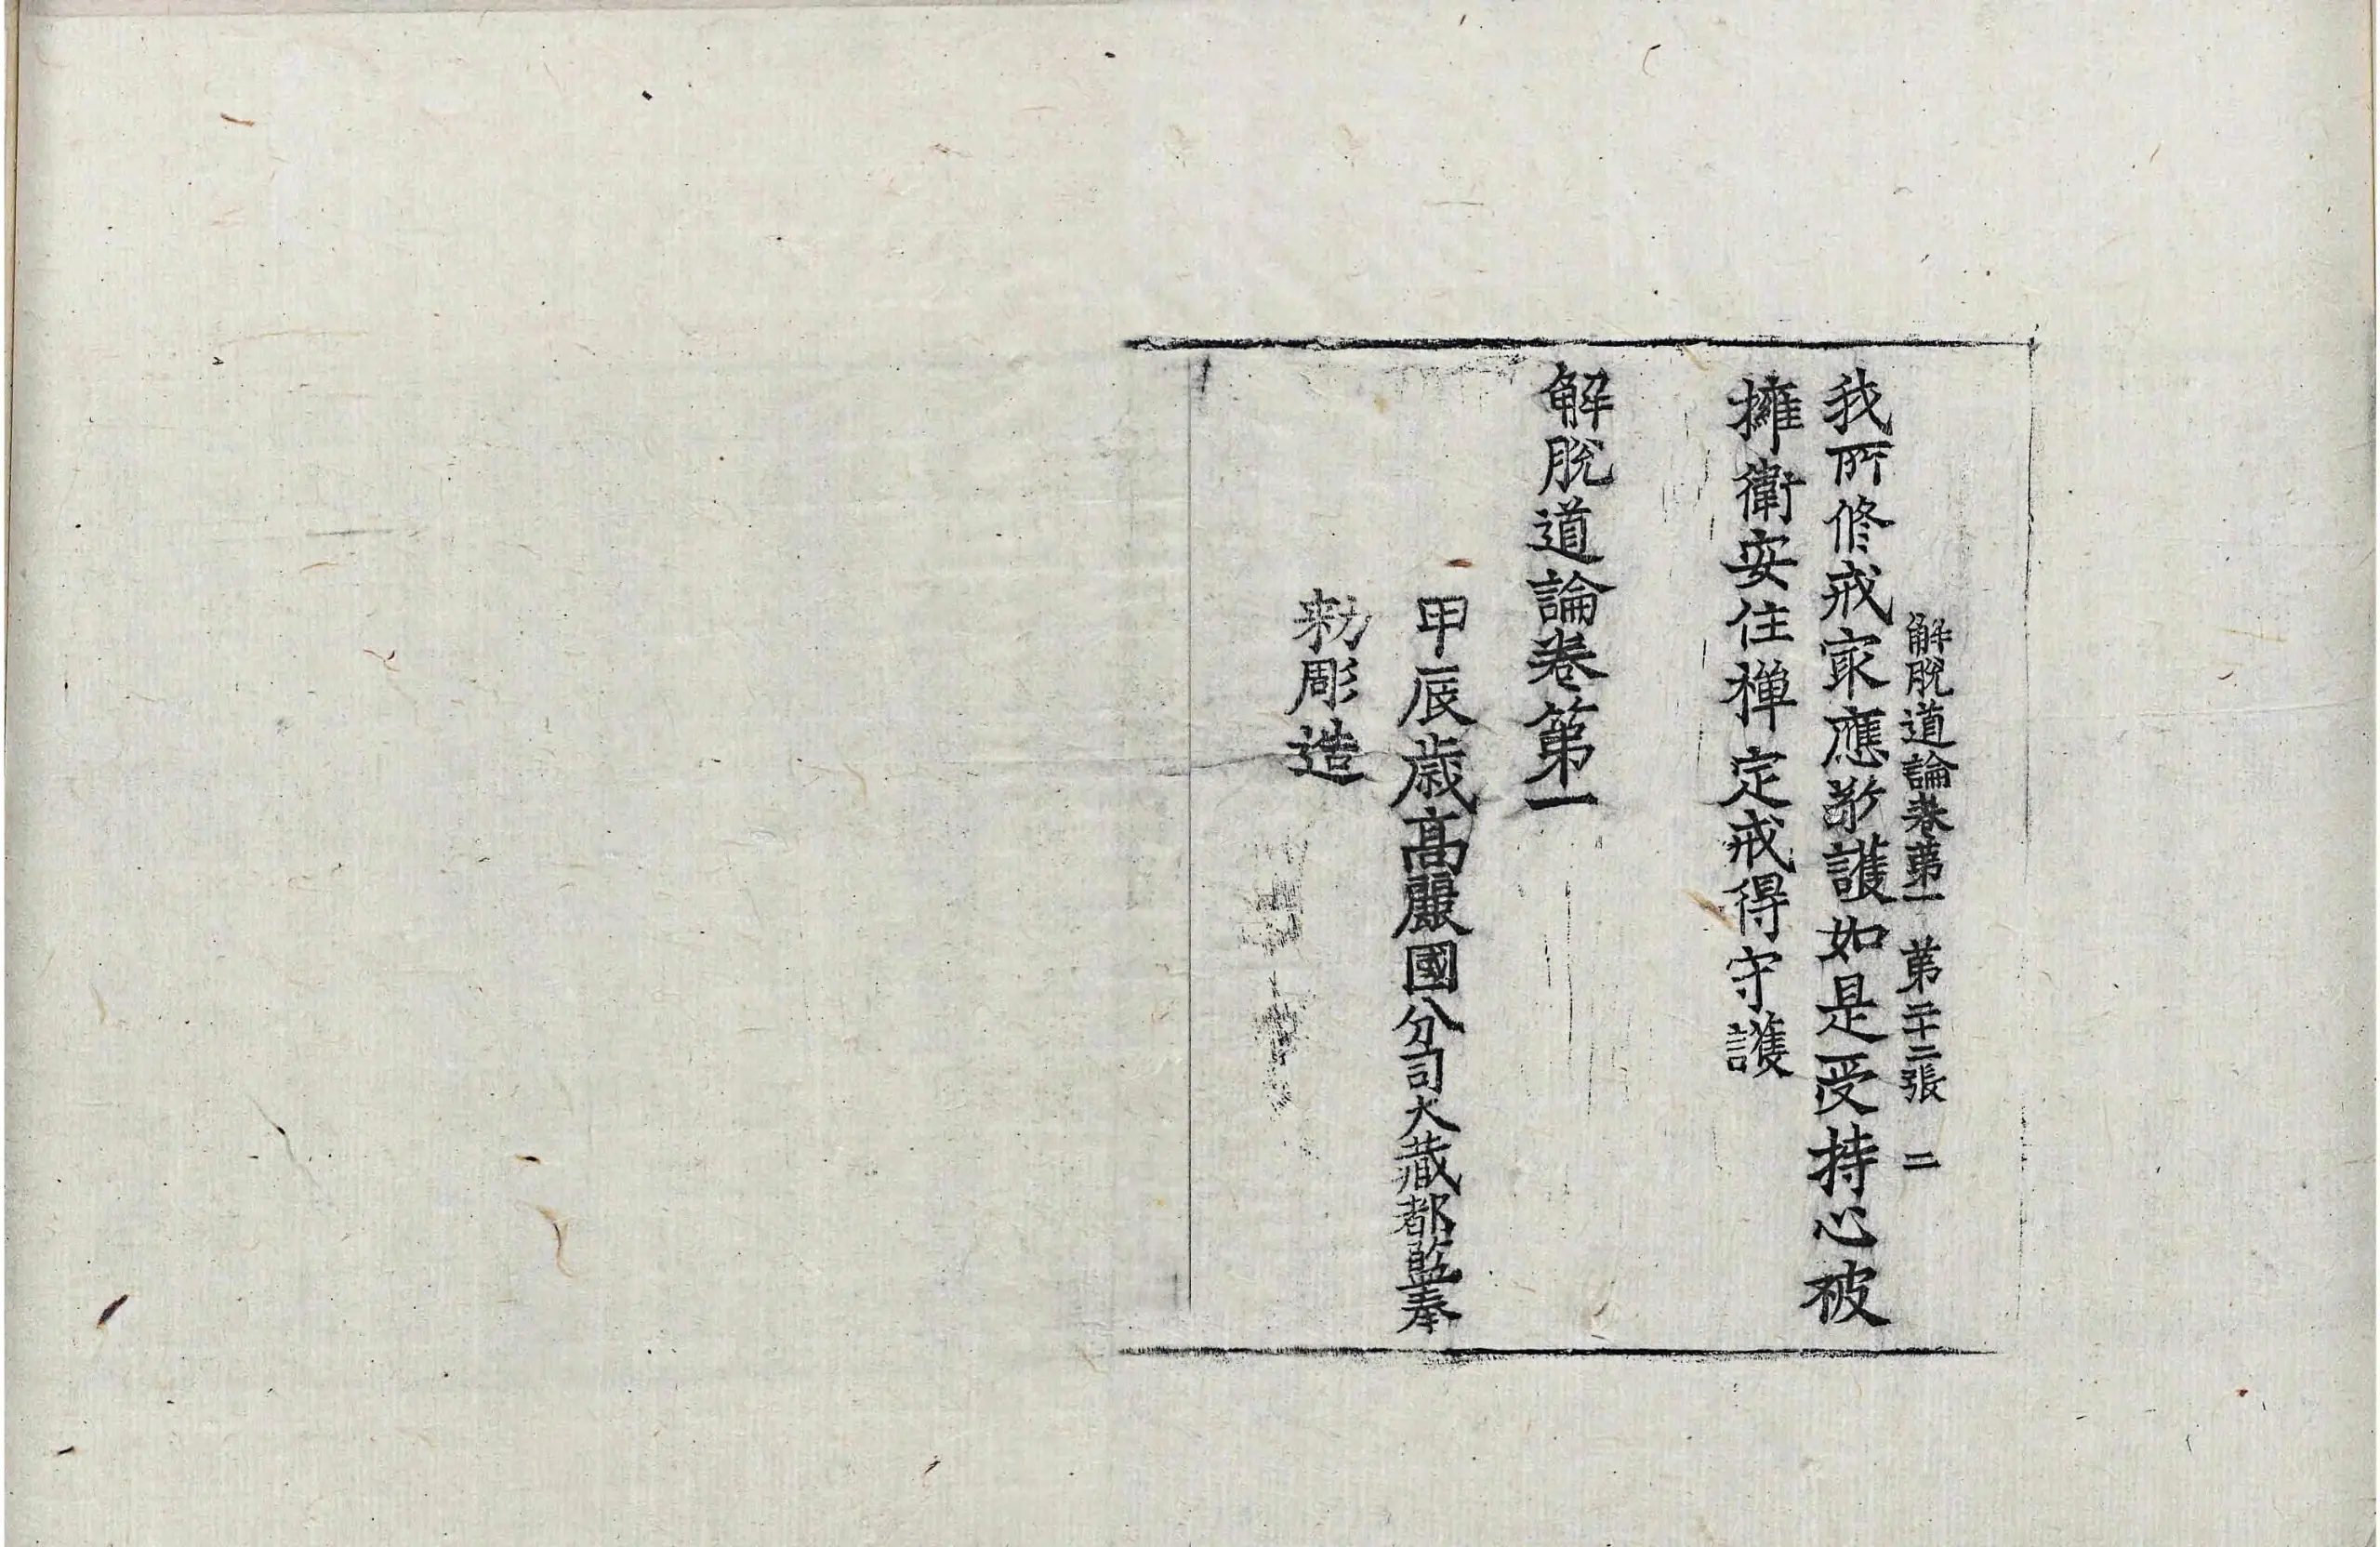 解脫道論卷第一 第二十二張 二
我所修戒㝡應敬護如是受持心被
擁衛安住禪定戒得守護
解脫道論卷第一
甲辰歲高麗國分司大藏都監奉
勅彫造